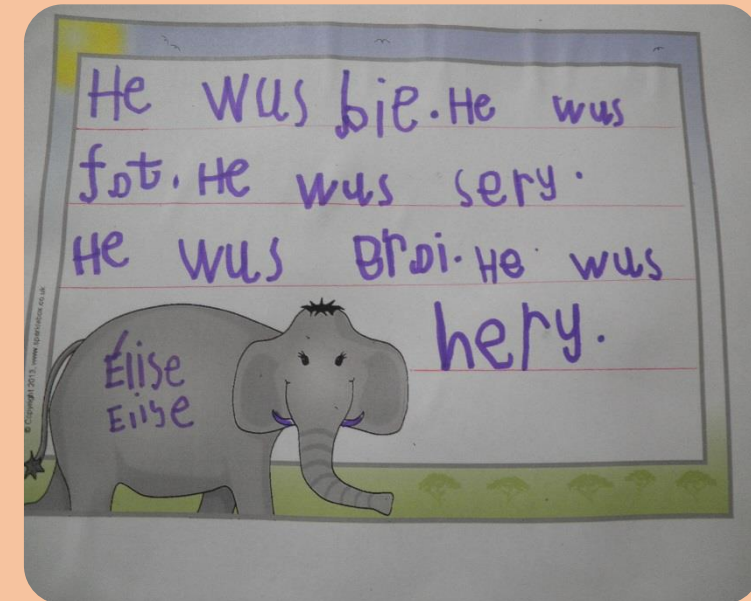 He wus bie. He wus
fat. He wus sery.
He wus Brai. He wus
hery.
Élise
Elise
© Copyright 2013, www.sparklebox.co.uk